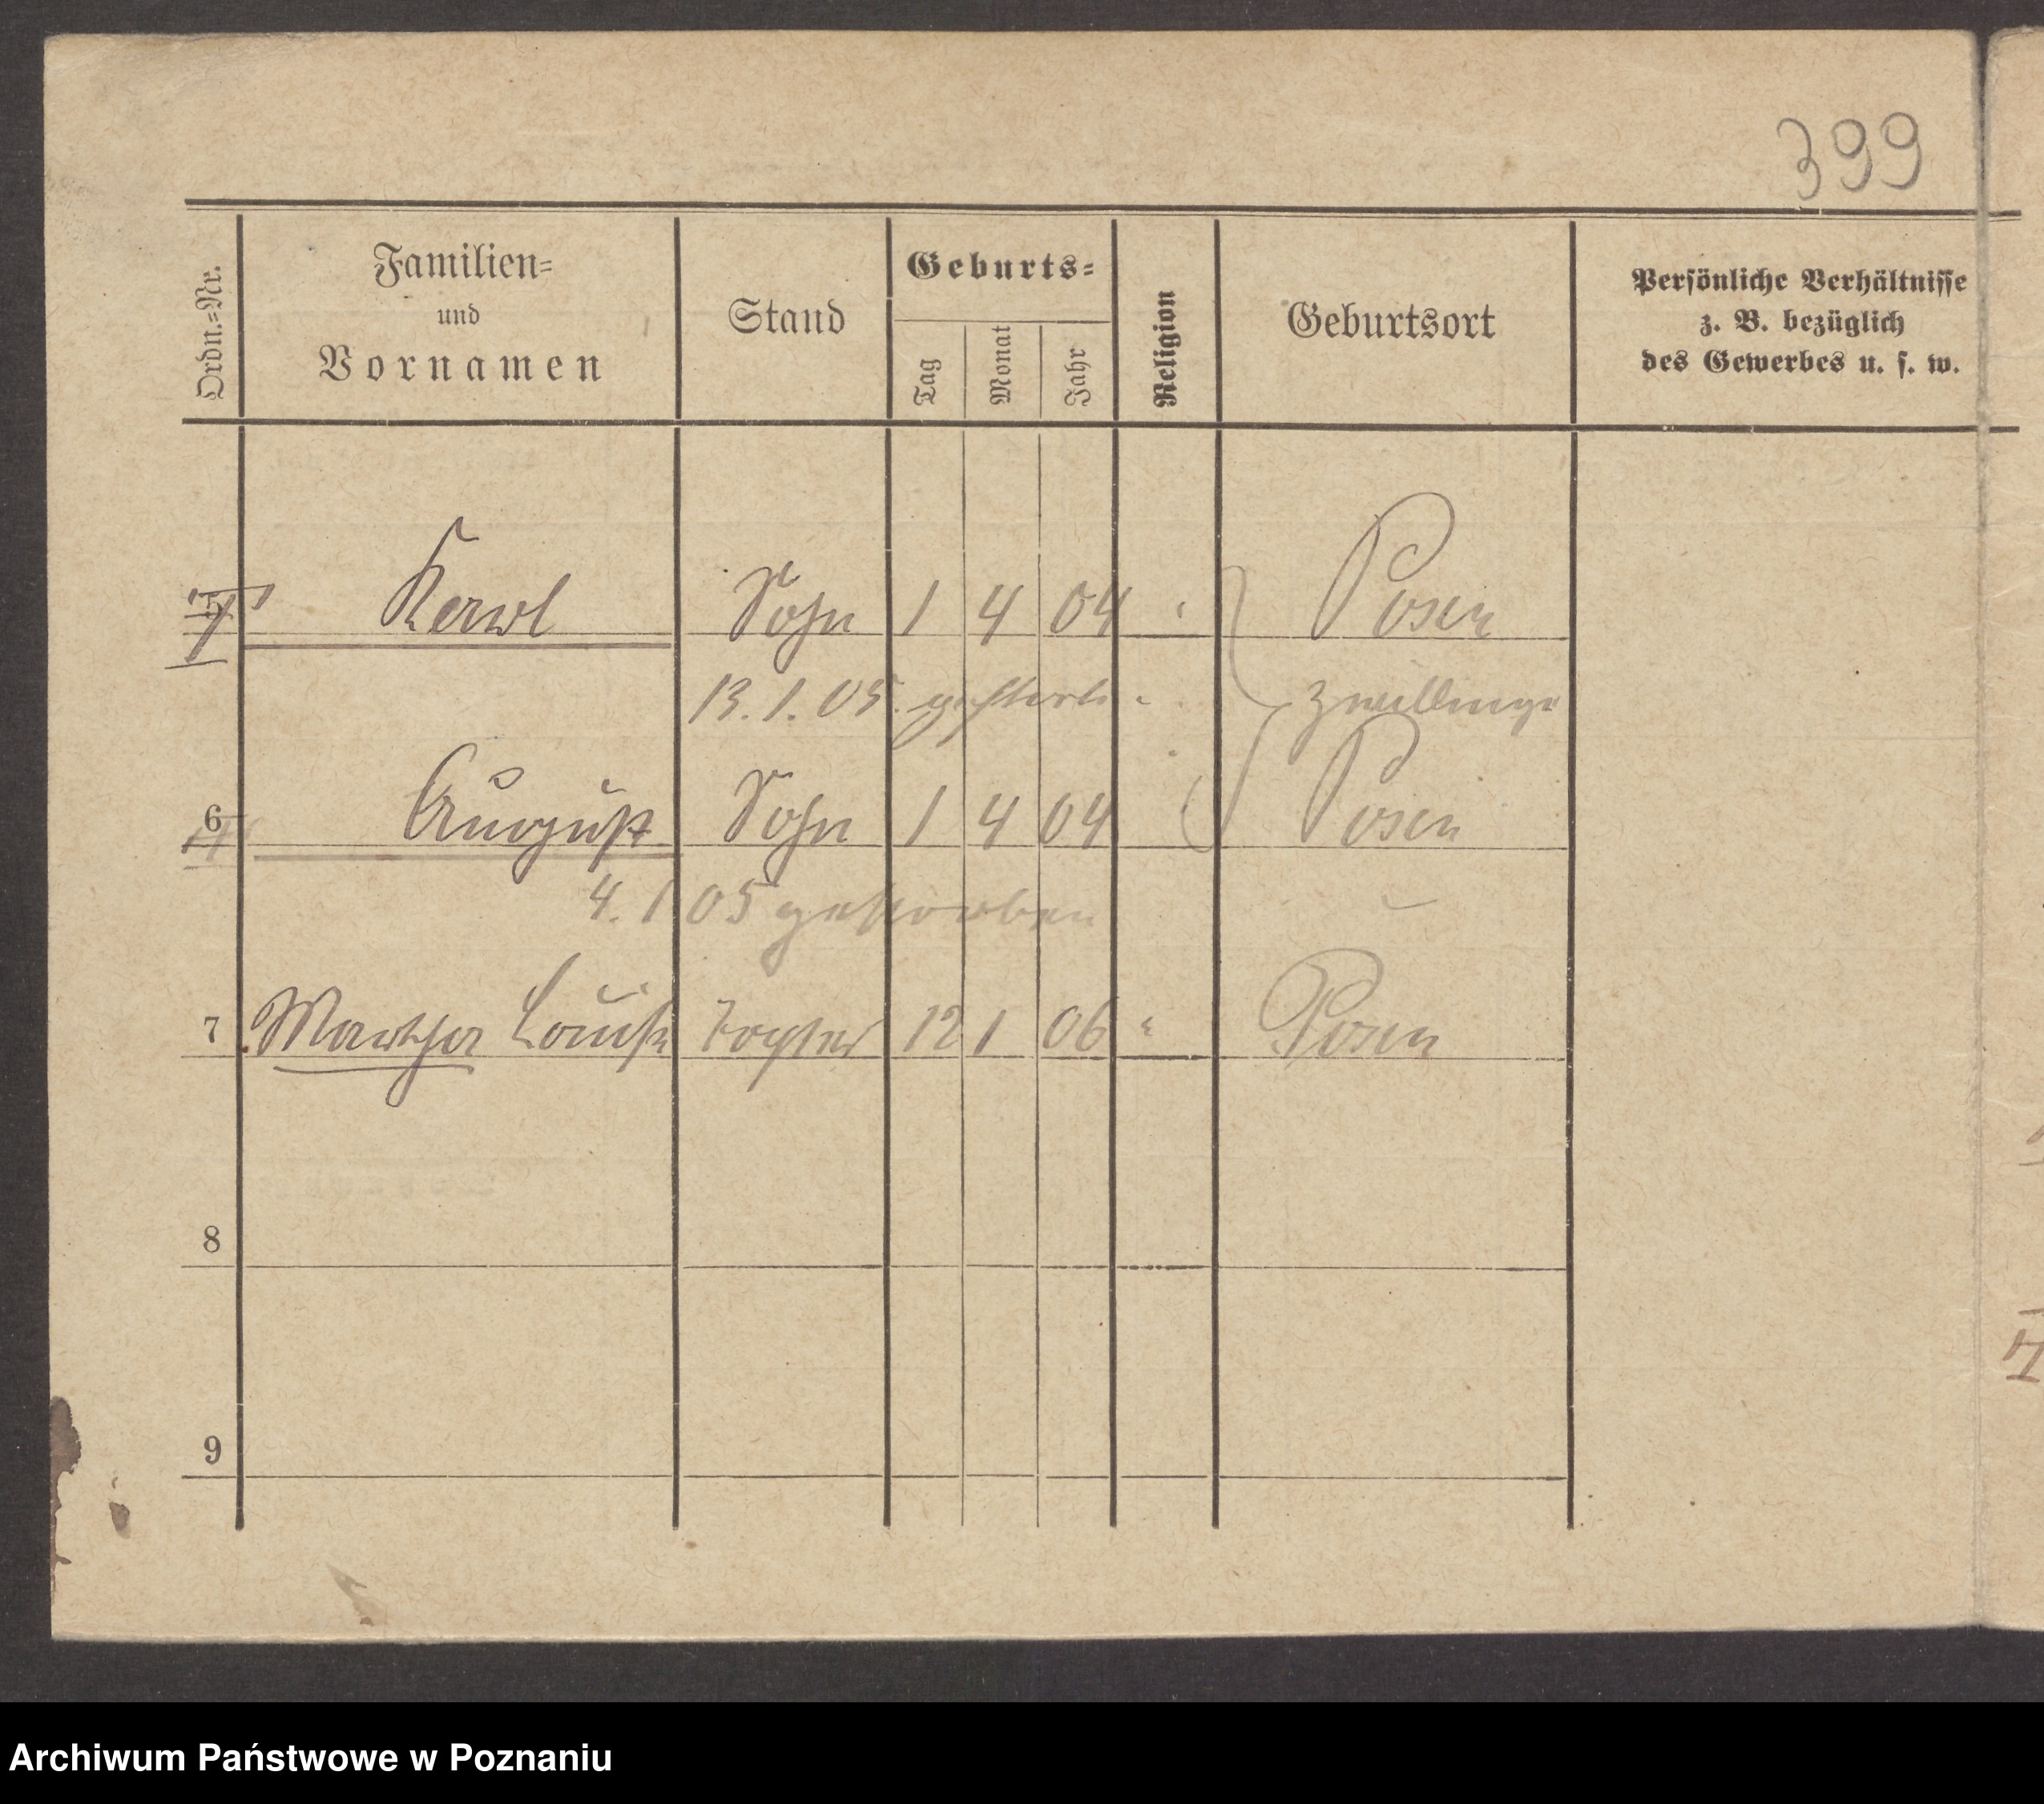 399
Ordn.=Nr. Familien= und Vornamen Stand Geburts= Tag Monat Jahr Religion Geburtsort Persönliche Verhältnisse z. B. bezüglich des Gewerbes u. s. w.
5 Karl Sohn 1 4 04 " Posen
13.1.05. gestorb. Zwillinge
6 August Sohn 1 4 04 Posen
4.1 05 gestorben
7 Martha Louise Tochter 12 1 06 " Posen
8
9
Archiwum Państwowe w Poznaniu